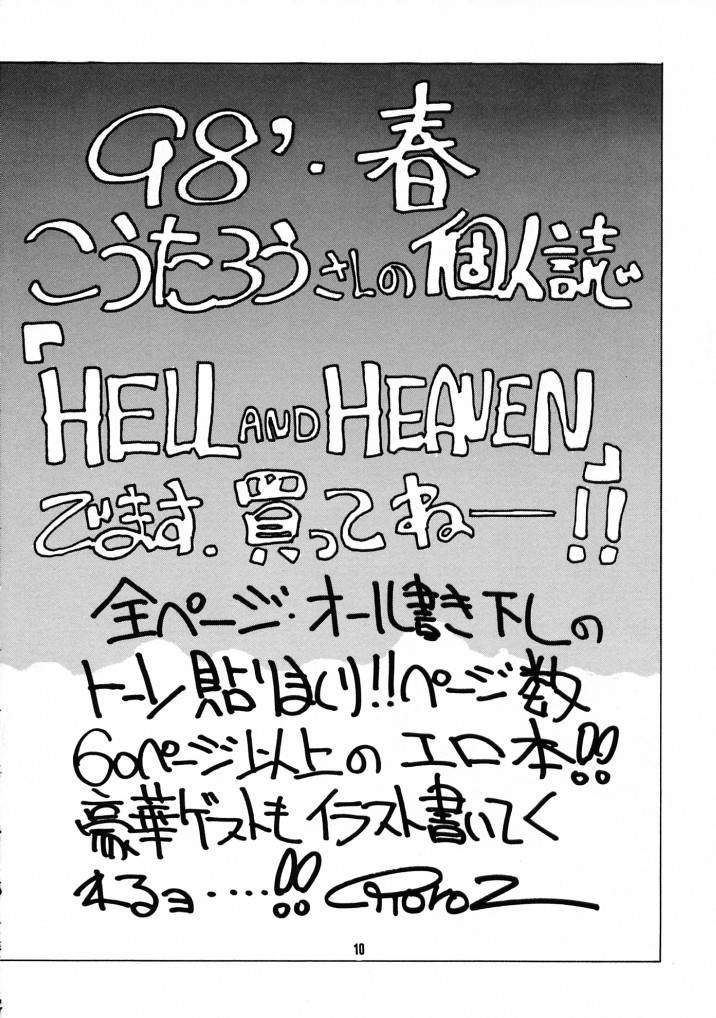 98'・春
こうたろうさんの個人誌
『HELL AND HEAVEN』
でます．買ってねー!!
全ページ・オール書き下しの
トーン貼りまくり!!ページ数
60ページ以上のエロ本!!
豪華ゲストもイラスト書いてく
れるョ‥‥!!
10